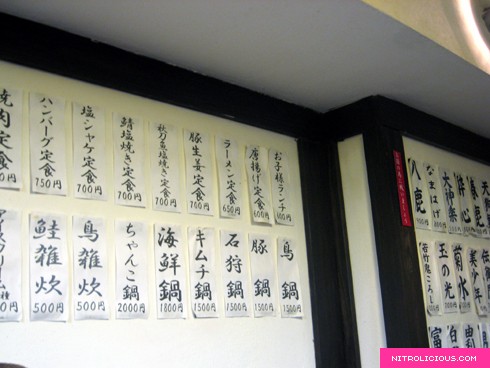 お子様ランチ 600円
唐揚げ定食 600円
ラーメン定食 650円
豚生姜定食 700円
秋刀魚塩焼き定食 700円
鯖塩焼き定食 700円
塩シャケ定食 700円
ハンバーグ定食 750円
焼肉定食
鳥鍋 1500円
豚鍋 1500円
石狩鍋 1500円
キムチ鍋 1500円
海鮮鍋 1800円
ちゃんこ鍋 2000円
鳥雑炊 500円
鮭雑炊 500円
アイスクリーム
なまはげ
八鹿
美少年
菊水
玉の光
若竹鬼ころし
NITROLICIOUS.COM